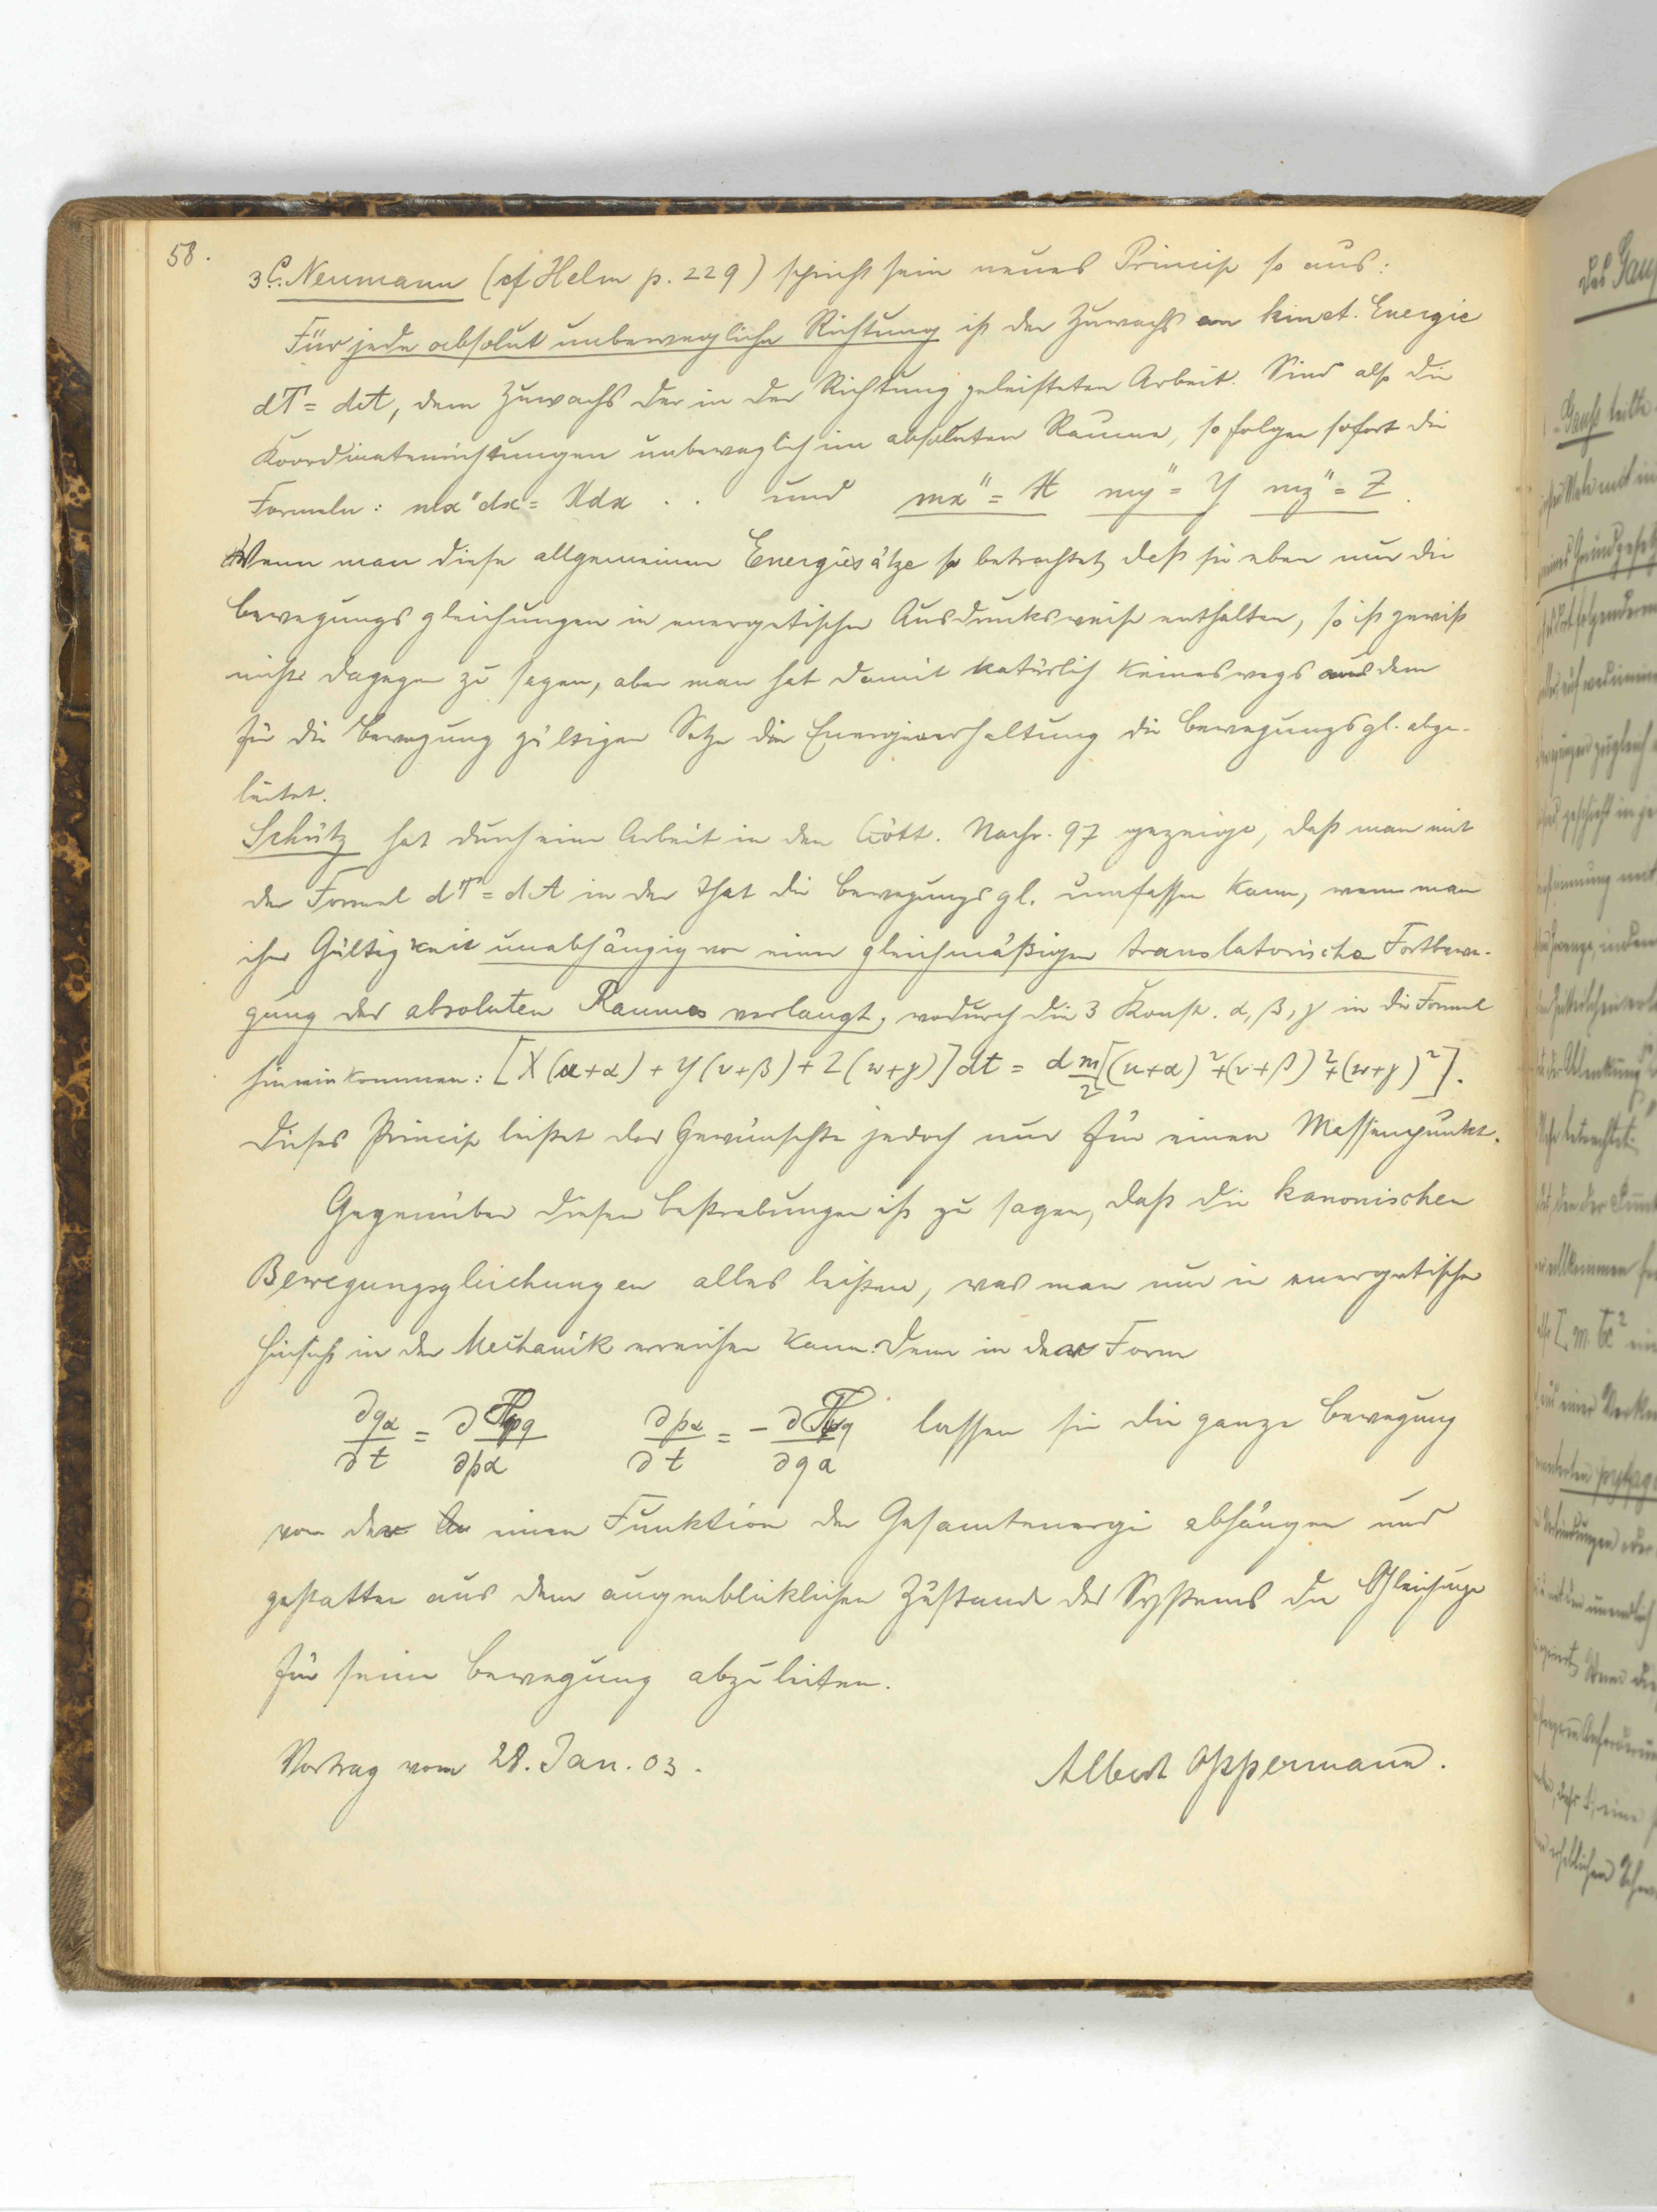 58.
3 C. Neumann (cf Helm p. 229) spricht sein neues Princip so aus:
Für jede absolut unbewegliche Richtung ist der Zuwachs an kinet. Energie
dT = dA, dem Zuwachs der in der Richtung geleisteten Arbeit. Sind also die
Koordinatenrichtungen unbeweglich im absoluten Raume, so folgen sofort die
Formeln: mx''dx = Xdx . . und mx'' = X my'' = Y mz'' = Z.
Wenn man diese allgemeinen Energiesätze so betrachtet, daß sie eben nur die
Bewegungsgleichungen in energetischer Ausdrucksweise enthalten, so ist gewiß
nichts dagegen zu sagen, aber man hat damit natürlich keineswegs aus dem
für die Bewegung gültigen Satze der Energieerhaltung die Bewegungsgl. abge-
leitet.
Schütz hat durch eine Arbeit in den Gött. Nachr. 97 gezeigt, daß man mit
der Formel dT = dA in der That die Bewegungsgl. umfassen kann, wenn man
ihre Gültigkeit unabhängig von einer gleichmäßigen translatorischen Fortbewe-
gung des absoluten Raumes verlangt, wodurch die 3 Konst. α, β, γ in die Formel
hineinkommen: [X(u+α) + Y(v+β) + Z(w+γ)]dt = d m/2[(u+α)²+(v+β)²+(w+γ)²].
Dieses Princip leistet das Gewünschte jedoch nur für einen Massenpunkt.
Gegenüber diesen Bestrebungen ist zu sagen, daß die kanonischen
Bewegungsgleichungen alles leisten, was man nur in energetischer
Hinsicht in der Mechanik erreichen kann. Denn in der Form
∂qα/∂t = ∂Tpq/∂pα ∂pα/∂t = -∂Tpq/∂qα lassen sie die ganze Bewegung
von der einen Funktion der Gesamtenergie abhängen und
gestatten aus dem augenblicklichen Zustande des Systems die Gleichungen
für seine Bewegung abzuleiten.
Vortrag vom 28. Jan. 03.
Albert Oppermann.